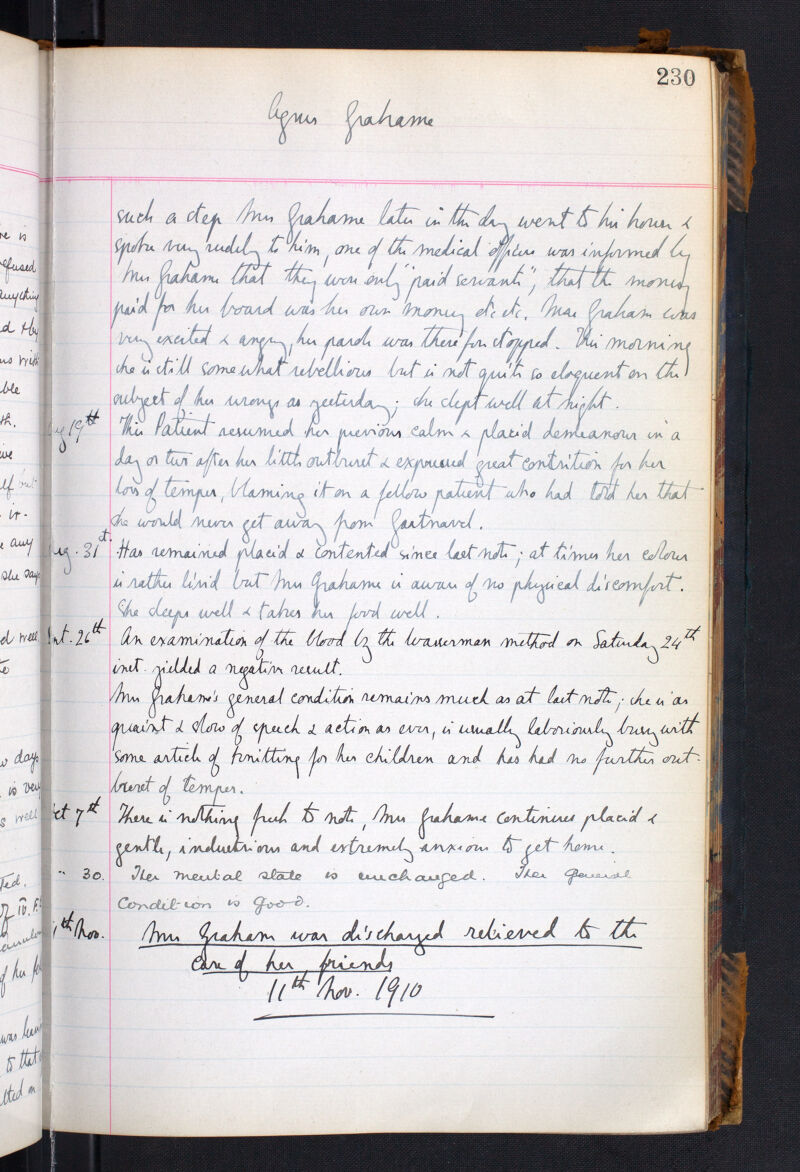 230
Agnes Grahame
such a step Mrs Grahame later in the day went to his house &
spoke very rudely to him, one of the medical officers was informed by
Mrs Grahame that they were only "paid servants", that the money
paid for her board was her own money etc etc. Mrs Graham was
very excited & angry, her parole was therefore stopped. This morning
she is still somewhat rebellious but is not quite so eloquent on the
subject of her wrongs as yesterday; she slept well at night.
Aug 19th This Patient resumed her previous calm & placid demeanour in a
day or two after her little outburst & expressed great contrition for her
loss of temper, blaming it on a fellow patient who had told her that
she would never get away from Gartnavel.
Aug. 31st Has remained placid & contented since last note; at times her colour
is rather livid but Mrs Grahame is aware of no physical discomfort.
She sleeps well & takes her food well.
Sept. 26th An examination of the blood by the Wasserman method on Saturday 24th
inst. yielded a negative result.
Mrs Grahame's general condition remains much as at last note; she is as
quaint & slow of speech & action as ever, is usually laboriously busy with
some article of knitting for her children and has had no further out-
burst of temper.
Oct 7th There is nothing fresh to note, Mrs Grahame continues placid &
gentle, industrious and extremely anxious to get home.
" 30. Her mental state is unchanged. Her general
condition is good.
11th Nov. Mrs Graham was discharged relieved to the
care of her friends
11th Nov. 1910